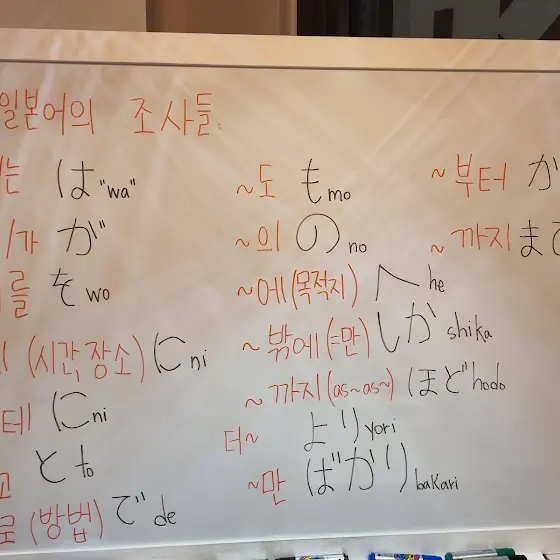 일본어의 조사들
는 は "wa"
/가 が
를 を wo
(시간, 장소) に ni
테 に ni
と to
로 (방법) で de
~도 も mo
~의 の no
~에 (목적지) へ he
~밖에 (=만) しか shika
~까지 (as~as~) ほど hodo
더~ より yori
~만 ばかり bakari
~부터 か
~까지 まで